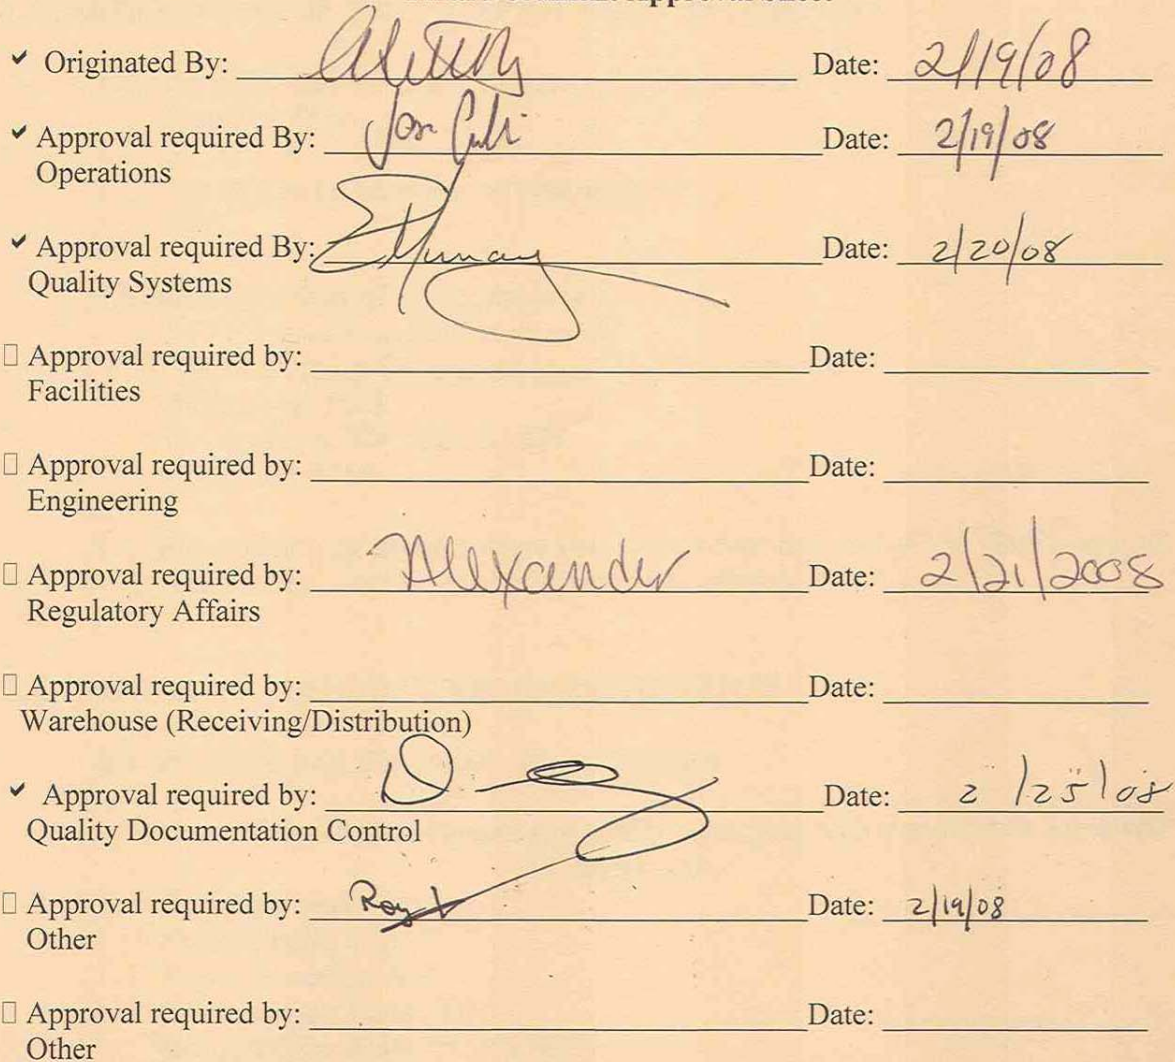 Approval Sheet
✔ Originated By: Date: 2/19/08
✔ Approval required By: Date: 2/19/08
Operations
✔ Approval required By: Date: 2/20/08
Quality Systems
☐ Approval required by: Date:
Facilities
☐ Approval required by: Date:
Engineering
☐ Approval required by: Alexander Date: 2/21/2008
Regulatory Affairs
☐ Approval required by: Date:
Warehouse (Receiving/Distribution)
✔ Approval required by: Date: 2/25/08
Quality Documentation Control
☐ Approval required by: Roy Date: 2/19/08
Other
☐ Approval required by: Date:
Other